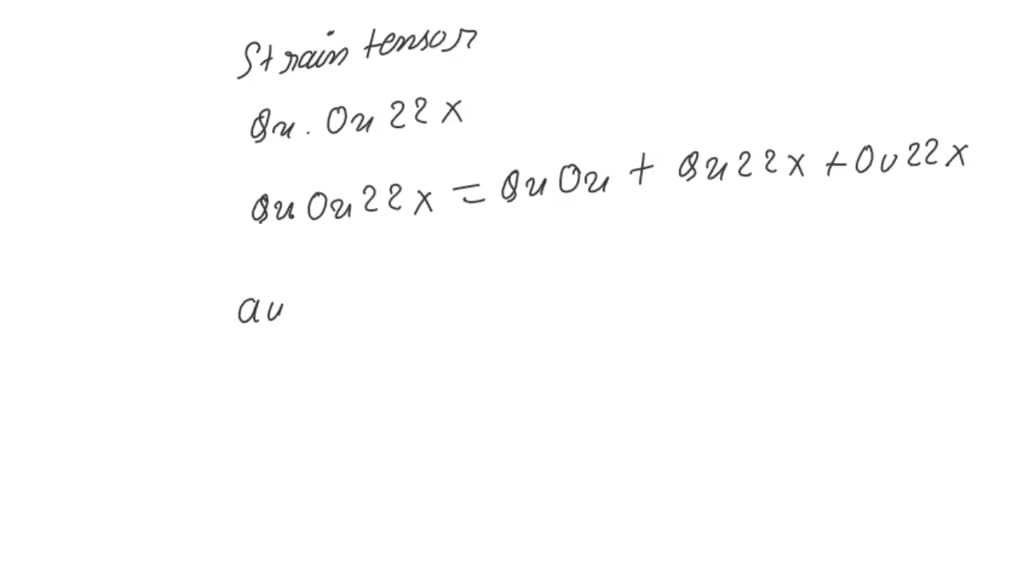 Strain tensor
8u. Ou 22 x
8u Ou 22 x = 8u Ou + 8u 22 x + Ou 22 x
au